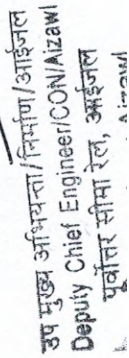 उप मुख्य अभियन्ता/निर्माण/आईजल
Deputy Chief Engineer/CON/Aizawl
पूर्वोत्तर सीमा रेल, आईजल
Aizawl